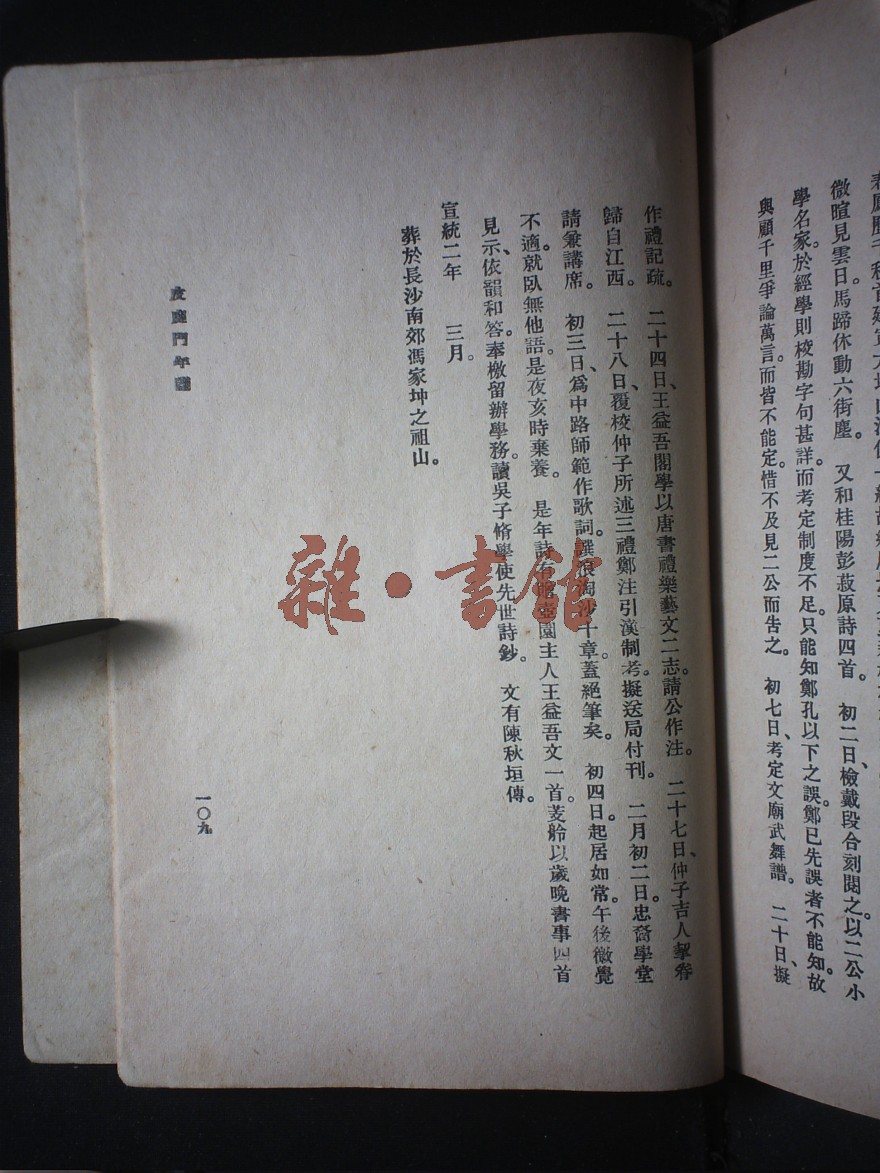 微暄見雲日馬蹄休動六街塵。　又和桂陽彭菽原詩四首　初二日、檢戴段合刻閱之以二公小
學名家。於經學則校勘字句甚詳。而考定制度不足。只能知鄭孔以下之誤。鄭已先誤者不能知。故
與顧千里爭論萬言。而皆不能定。惜不及見二公而告之。　初七日、考定文廟武舞譜。　二十日、擬
作禮記疏。　二十四日、王益吾閣學以唐書禮樂藝文二志請公作注。　二十七日、仲子吉人挈眷
歸自江西。　二十八日、覆校仲子所述三禮鄭注引漢制考擬送局付刊。　二月初二日、忠裔學堂
請兼講席。　初三日、爲中路師範作歌詞。撰浪淘沙十章。蓋絕筆矣。　初四日。起居如常。午後微覺
不適。就臥無他語。是夜亥時棄養。　是年詩有園主人王益吾文一首。芰舲以歲晚書事四首
見示、依韻和答。奉檄留辦學務。讀吳子脩學使先世詩鈔。　文有陳秋垣傳。
宣統二年　三月。
葬於長沙南郊馮家坤之祖山。
皮鹿門年譜
一〇九
雜・書館